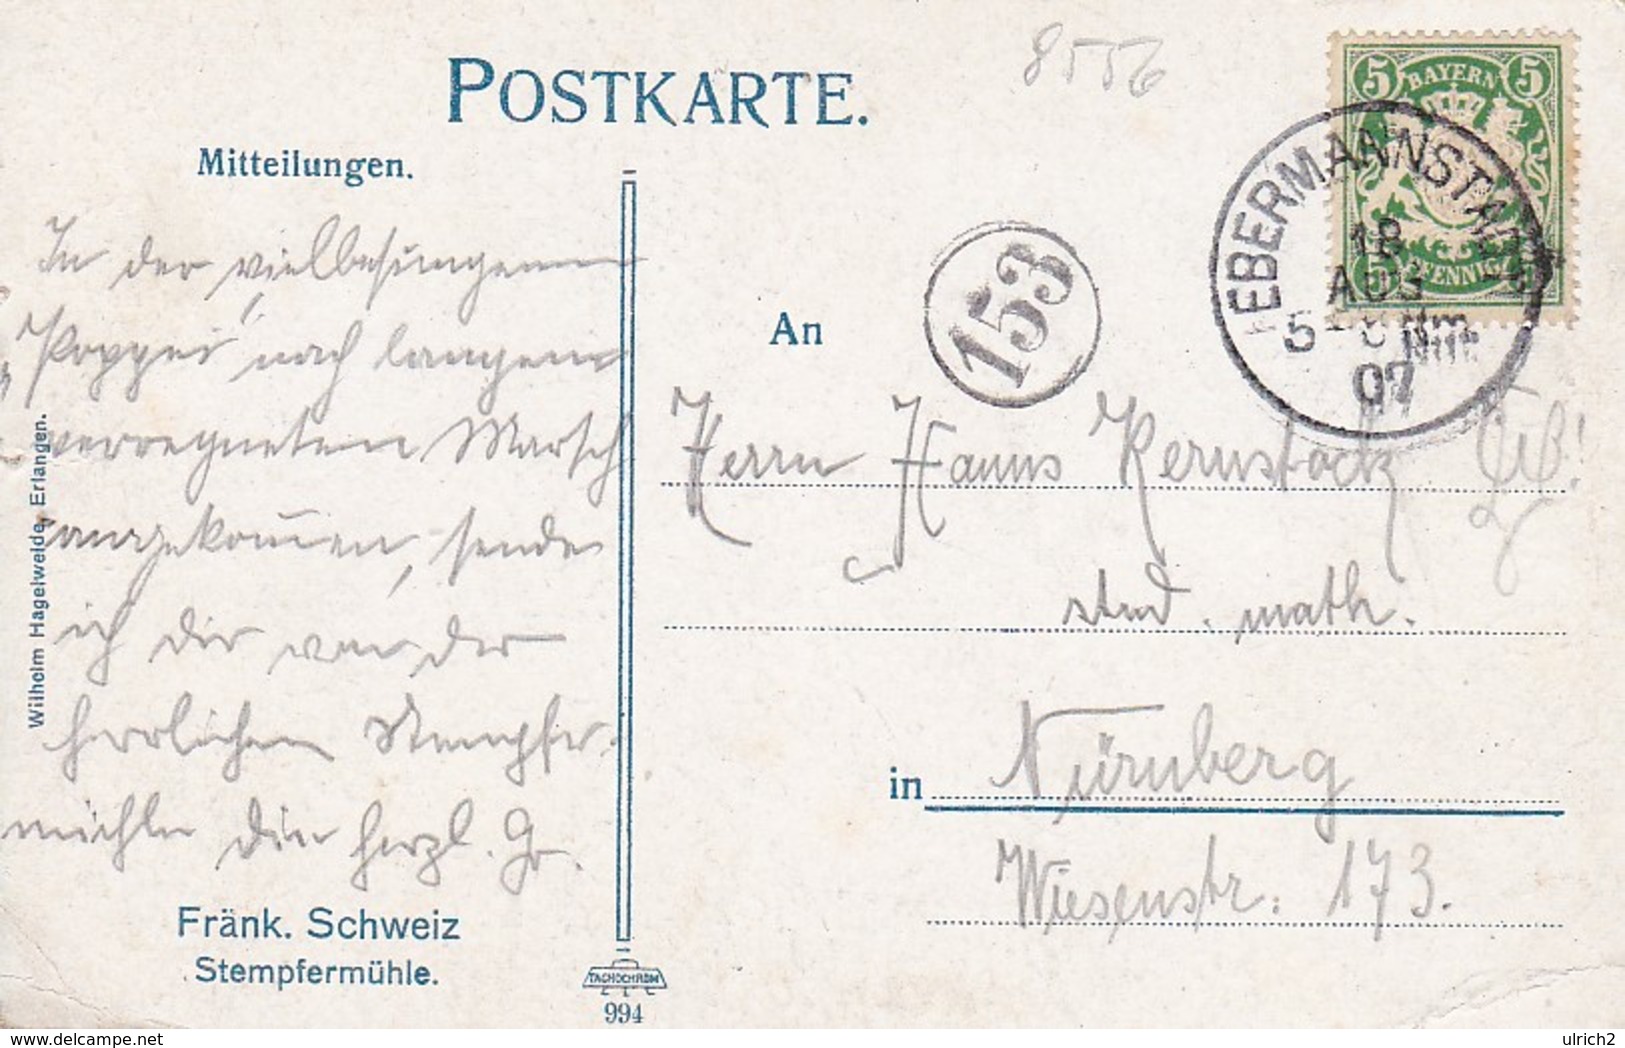 8556
POSTKARTE.
Mitteilungen.
BAYERN
5 5
5 PFENNIG 5
EBERMANNSTADT
18
AUG
5 Nm
07
153
In der vielbesungenen
"Poppei" nach langem
verregneten Marsch
angekommen, sende
ich dir von der
herrlichen Stempfer-
mühle den herzl. Gr.
An
Herrn Hanns Kernstock
stud. math.
in Nürnberg
Wiesenstr. 173.
Wilhelm Hagelweide, Erlangen.
Fränk. Schweiz
Stempfermühle.
TACHOCHROM
994
ulrich2